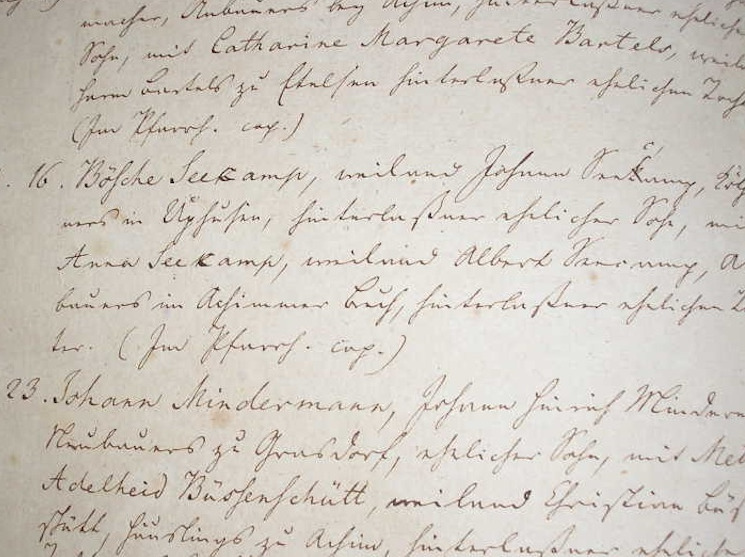 macher, Anbauers bey Achim, hinterlaßner ehelicher
Sohn, mit Catharine Margarete Bartels, weil
Harm Bartels zu Etelsen hinterlaßner ehelichen Toch
(Im Pfarrh. cop.)
16. Bösche Seekamp, weiland Johann Seekamp, Köt
ners in Uphusen, hinterlaßner ehelicher Sohn, mit
Anna Seekamp, weiland Albert Seekamp, A
bauers im Achimmer Bruch, hinterlaßner ehelichen T
ter. (Im Pfarrh. cop.)
23. Johann Mindermann, Johann Hinrich Minderm
Neubauers zu Grasdorf, ehelicher Sohn, mit Met
Adelheid Büssenschütt, weiland Christian Büs
schütt, Häuslings zu Achim, hinterlaßner ehelichen